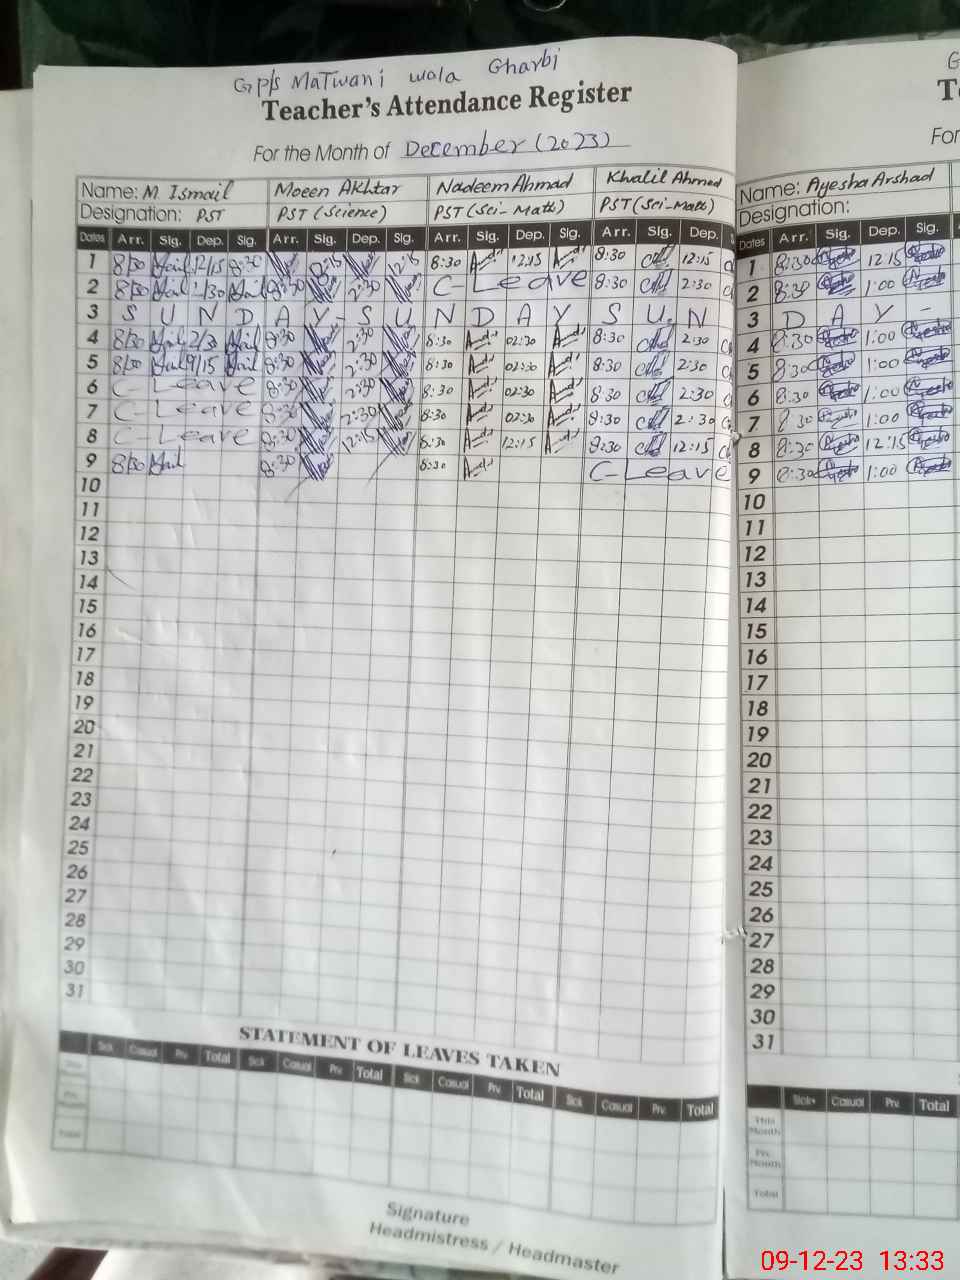 GPS Matwani wala Gharbi
Teacher's Attendance Register
For the Month of December (2023)
Name: M. Ismail Moeen Akhtar Nadeem Ahmad Khalil Ahmed
Designation: PST PST (Science) PST (Sci-Math) PST (Sci-Math)
Dates Arr. Sig. Dep. Sig. Arr. Sig. Dep. Sig. Arr. Sig. Dep. Sig. Arr. Sig. Dep.
1 8/30 12/15 8:30 12:15 12:15 8:30 12:15 8:30 12:15
2 8/30 8:30 2:30 C-Leave 8:30 2:30
3 S U N D A Y - S U N D A Y S U N
4 8/30 2/30 8:30 2:30 8:30 02:30 8:30 2:30
5 8/30 8:30 2:30 8:30 02:30 8:30 2:30
6 C-Leave 8:30 2:30 8:30 02:30 8:30 2:30
7 C-Leave 8:30 2:30 8:30 02:30 8:30 2:30
8 C-Leave 8:30 12:15 8:30 12:15 8:30 12:15
9 8/30 8:30 8:30 C-Leave
10
11
12
13
14
15
16
17
18
19
20
21
22
23
24
25
26
27
28
29
30
31
STATEMENT OF LEAVES TAKEN
Sick Casual Prv. Total Sick Casual Prv. Total Sick Casual Prv. Total Sick Casual Prv. Total
Total
Signature
Headmistress / Headmaster
Name: Ayesha Arshad
Designation:
Dates Arr. Sig. Dep. Sig.
1 8:30 12:15
2 8:30 1:00
3 D A Y -
4 8:30 1:00
5 8:30 1:00
6 8:30 1:00
7 8:30 1:00
8 8:30 12:15
9 8:30 1:00
10
11
12
13
14
15
16
17
18
19
20
21
22
23
24
25
26
27
28
29
30
31
Sick Casual Prv. Total
This Month
Prv. Month
Total
09-12-23 13:33